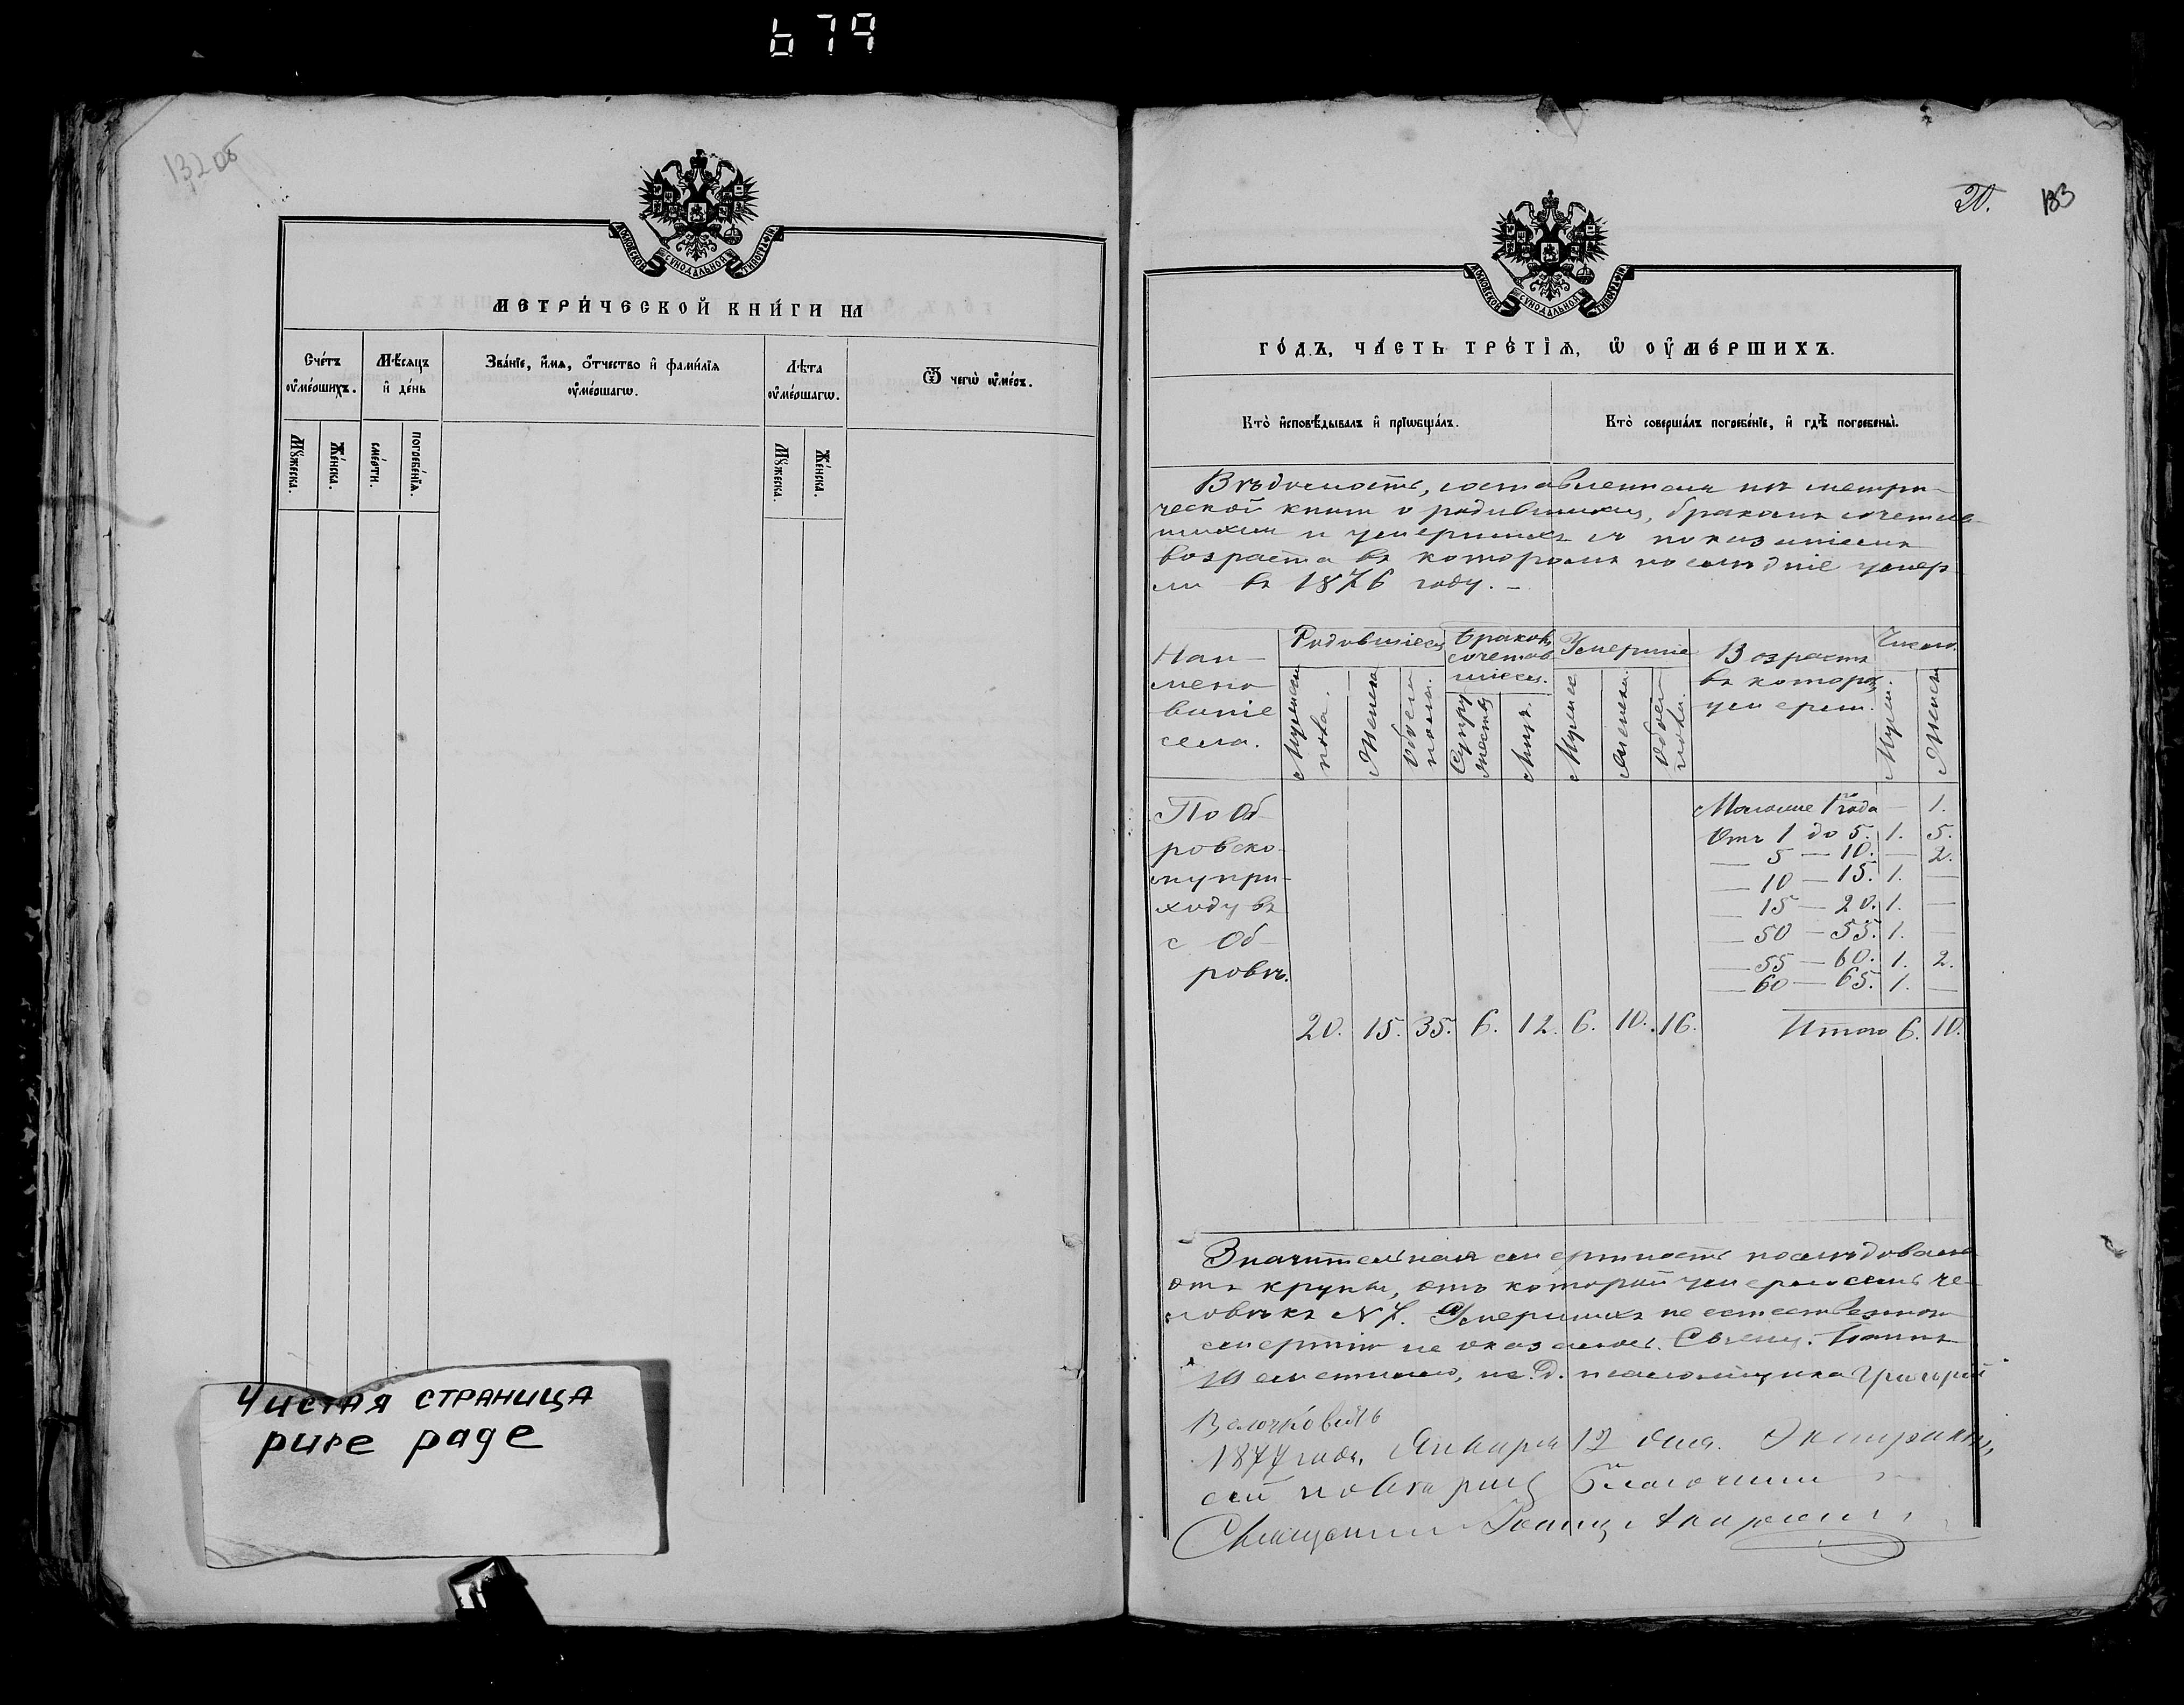 679
132 об
МОСКОВСКОЙ СѴНОДАЛЬНОЙ ТИПОГРАФІИ
МЕТРИ́ЧЕСКОЙ КНИ́ГИ НА
Сче́тъ ᲂу҆ме́ршихъ.
Мѣ́сяцъ и҆ де́нь
Зва́нїе, и҆́мѧ, ѻ҆́тчество и҆ фами́лїѧ ᲂу҆ме́ршагѡ.
Лѣ́та ᲂу҆ме́ршагѡ.
Ѿ чегѡ̀ ᲂу҆́меръ.
Мꙋ́жеска.
Же́нска.
сме́рти.
погребе́нїѧ.
Мꙋ́жеска.
Же́нска.
Чистая страница
pure page
20. 133
МОСКОВСКОЙ СѴНОДАЛЬНОЙ ТИПОГРАФІИ
ГО́ДЪ, ЧА́СТЬ ТРЕ́ТЇѦ, Ѡ҆ ОУ҆МЕ́РШИХЪ.
Кто̀ и҆сповѣ́дывалъ и҆ прїѡбща́лъ.
Кто̀ соверша́лъ погребе́нїе, и҆ гдѣ̀ погребены̀.
Вѣдомость, составленная по метри-
ческой книги о родившихся, бракомъ сочетав-
шихся и умершихъ съ показаніемъ
возраста въ которомъ последніе умер
ли въ 1876 году. –
Наи-
мено
ваніе
села.
Родовшіеся
Мужеска пола.
Женска
Обоего пола.
Бракомъ сочетав шіеся.
Супружествъ
Лицъ.
Умершіе
Мужеск
Женска.
Обоего пола.
Возрастъ
въ котором
умерли.
Число.
Муж.
Женск
По Об-
ровско-
му при-
ходу въ
с Об-
ровѣ.
Моложе 1го года — 1.
Отъ 1 до 5. 1. 5.
— 5 — 10. — 2.
— 10 — 15. 1. —
— 15 — 20. 1. —
— 50 — 55. 1. —
— 55 — 60. 1. 2.
— 60 — 65. 1. —
20. 15. 35. 6. 12. 6. 10. 16. Итого 6. 10.
Значительная смертность последовала
отъ крупы, отъ которой умерло семь че-
ловѣкъ N 7. Умершихъ не естественною
смертію не оказалось. Свящ. Іоаннъ
и. д. псаломщика Григорій
1877 года, Января 12 дня. Экземпляръ
сей повѣрялъ Благочинный
Священникъ